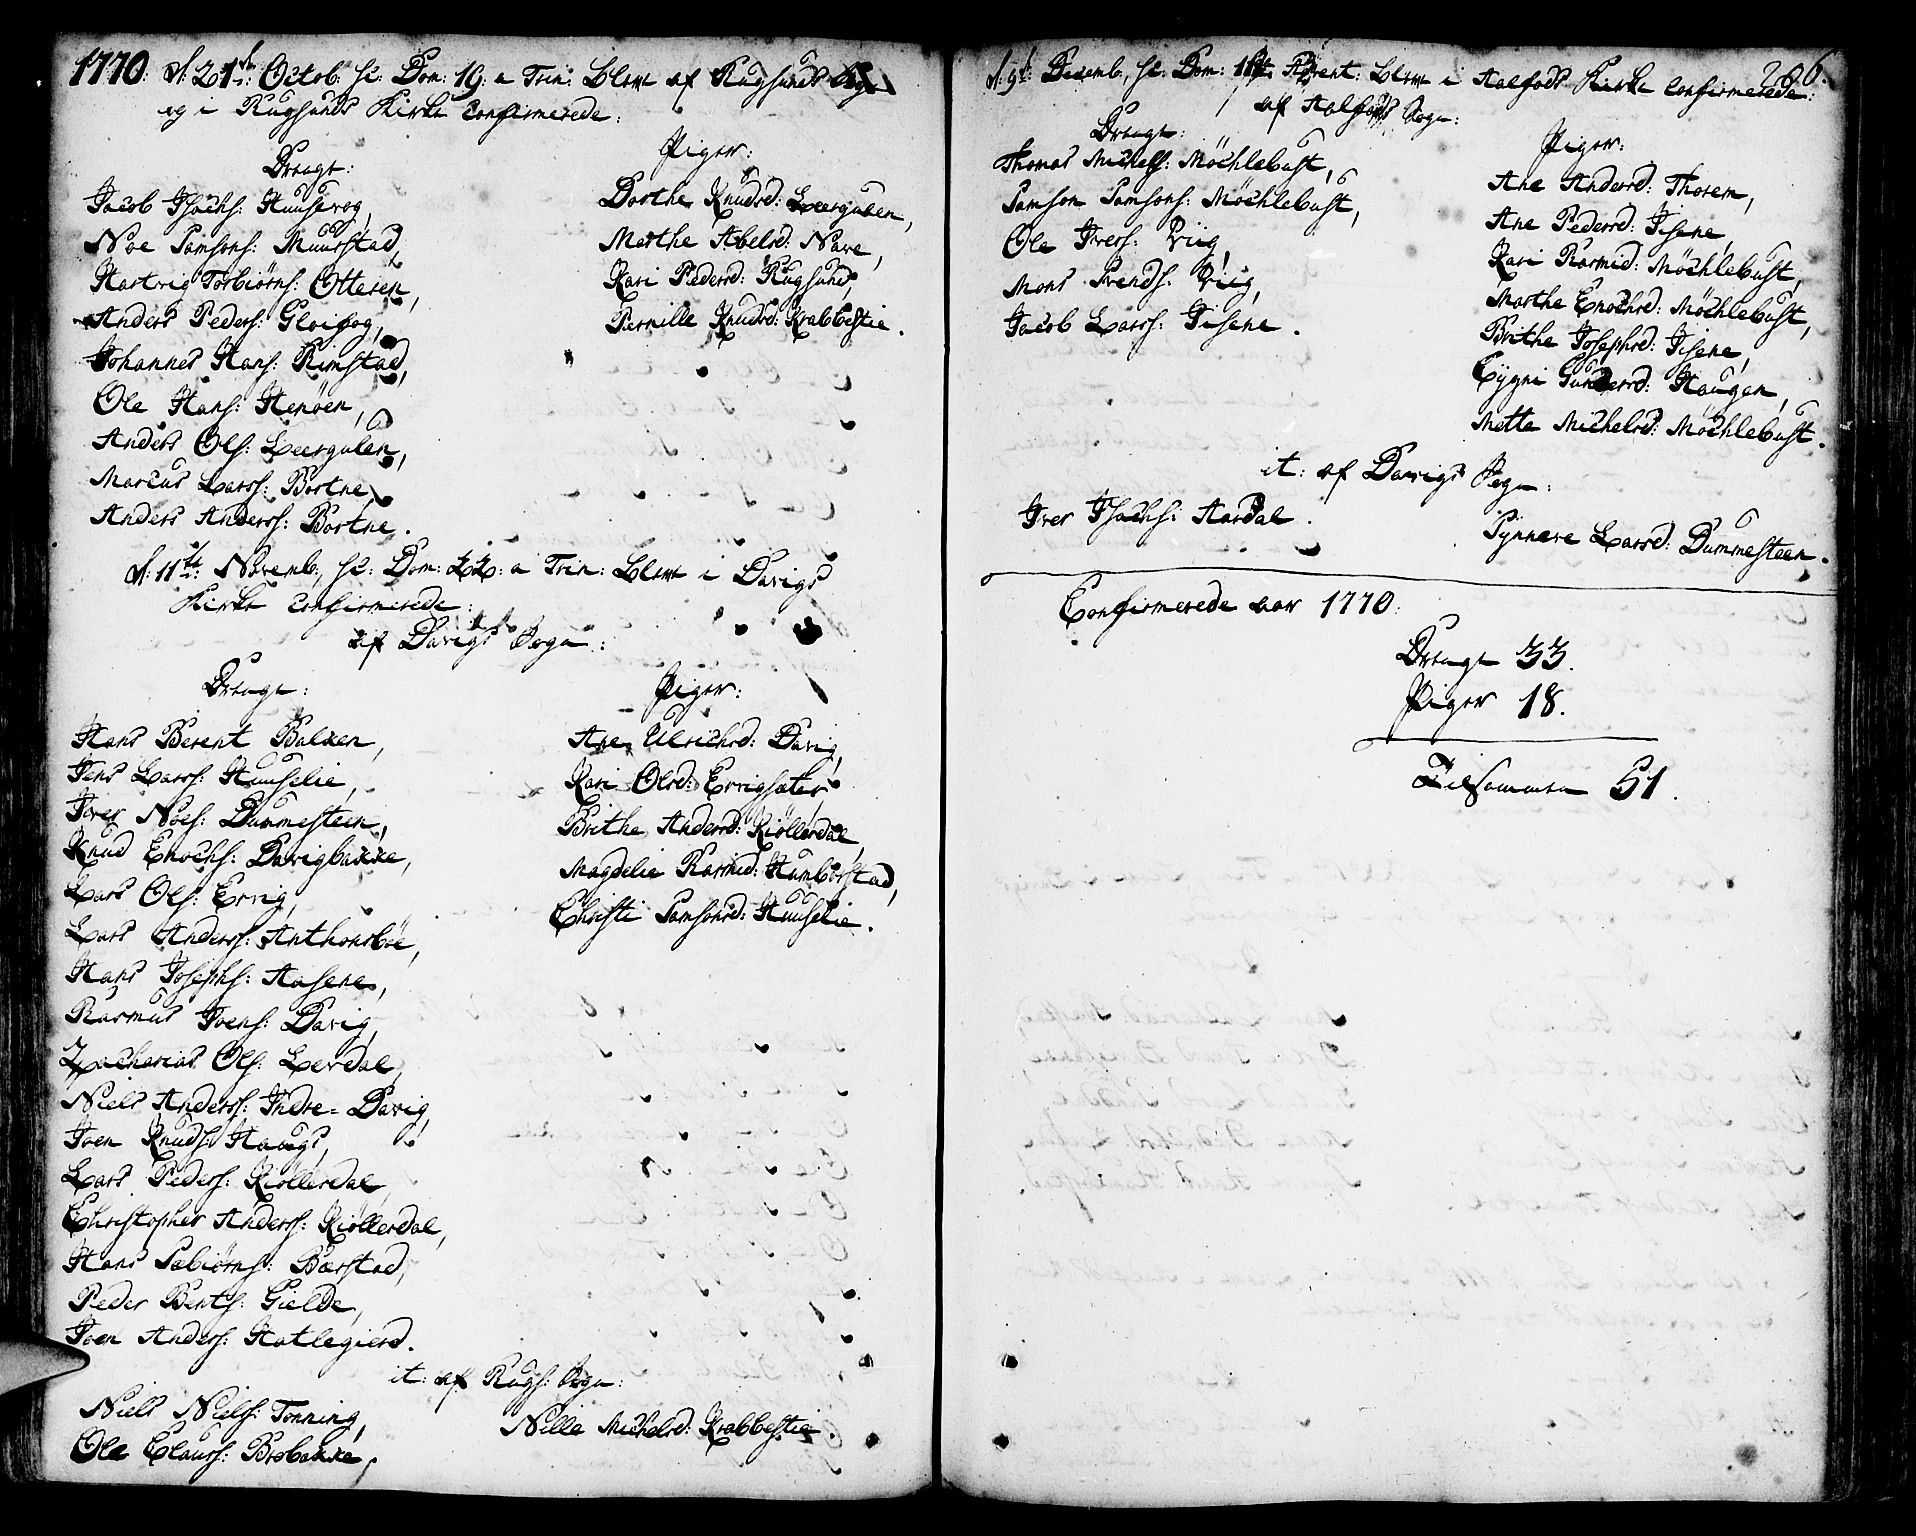 1770. d. 21de Octob. sc: Dom: 19. a Trin: Blew af Rugsunds Sogn
og i Rugsunds Kirke Confirmerede:
Drenge:
Jacob Isachs: Huusevog,
Noe Samsons: Muurstad,
Hartvig Torbiørns: Otteren,
Anders Peders: Gloifog,
Johannes Hans: Rimstad,
Ole Hans: Henøen,
Anders Ols: Leergulen,
Marcus Larss: Bortne,
Anders Anderss: Bortne.
Piger:
Dorthe Knudsd: Leergulen,
Marthe Abelsd: Nave,
Kari Pedersd: Rugsund,
Pernille Knudsd: Krabbestie.
d: 11te Novemb. sc: Dom: 22: a Trin: Blew i Davigs
Kirke Confirmerede:
af Davigs Sogn:
Drenge:
Hans Berent Balxen,
Jens Larss: Huuselie,
Iver Noes: Dummesteen,
Knud Enochs: Davigbakke,
Lars Ols: Ervig,
Lars Anderss: Anthonsbøe,
Hans Josephs: Aasene,
Rasmus Joens: Davig,
Zacharias Ols: Levdal,
Niels Anderss: Indre-Davig,
Joen Knuds: Haugs,
Lars Peders: Kiøllerdal,
Christopher Anderss: Kiøllerdal,
Hans Sæbiørns: Barstad,
Peder Bents: Gielde,
Joen Anders: Hatlegierd.
Piger:
Ane Ulrichsd: Davig,
Kari Olsd: Ervigsæter,
Brithe Andersd: Kiøllerdal,
Magdelie Rasmid: Humborstad,
Christi Samsonsd: Huuselie.
it: af Rugs: Sogn:
Niels Niels: Tonning,
Ole Clauss: Brobakke,
Nille Michelsd: Krabbestie.
266.
d. 9de Decemb. sc: Dom: 2 Advent: Blew i Aalfods Kirke Confirmerede:
af Aalfods Sogn:
Drenge:
Thomas Michels: Möchlebust,
Samson Samsons: Möchlebust,
Ole Ivers: Viig,
Mons Svends: Viig,
Jacob Larss: Iisene.
Piger:
Ane Andersd: Thorem,
Ane Pedersd: Iisene,
Kari Rasmid: Möchlebust,
Marthe Enochsd: Möchlebust,
Brithe Josephsd: Iisene,
Cygni Gundersd: Haugen,
Mette Michelsd: Möchlebust.
it: af Davigs Sogn:
Iver Isachs: Aardal.
Synneve Larsd: Dummesteen.
Confirmerede aar 1770:
Drenge 33.
Piger 18.
Tilsammen 51.